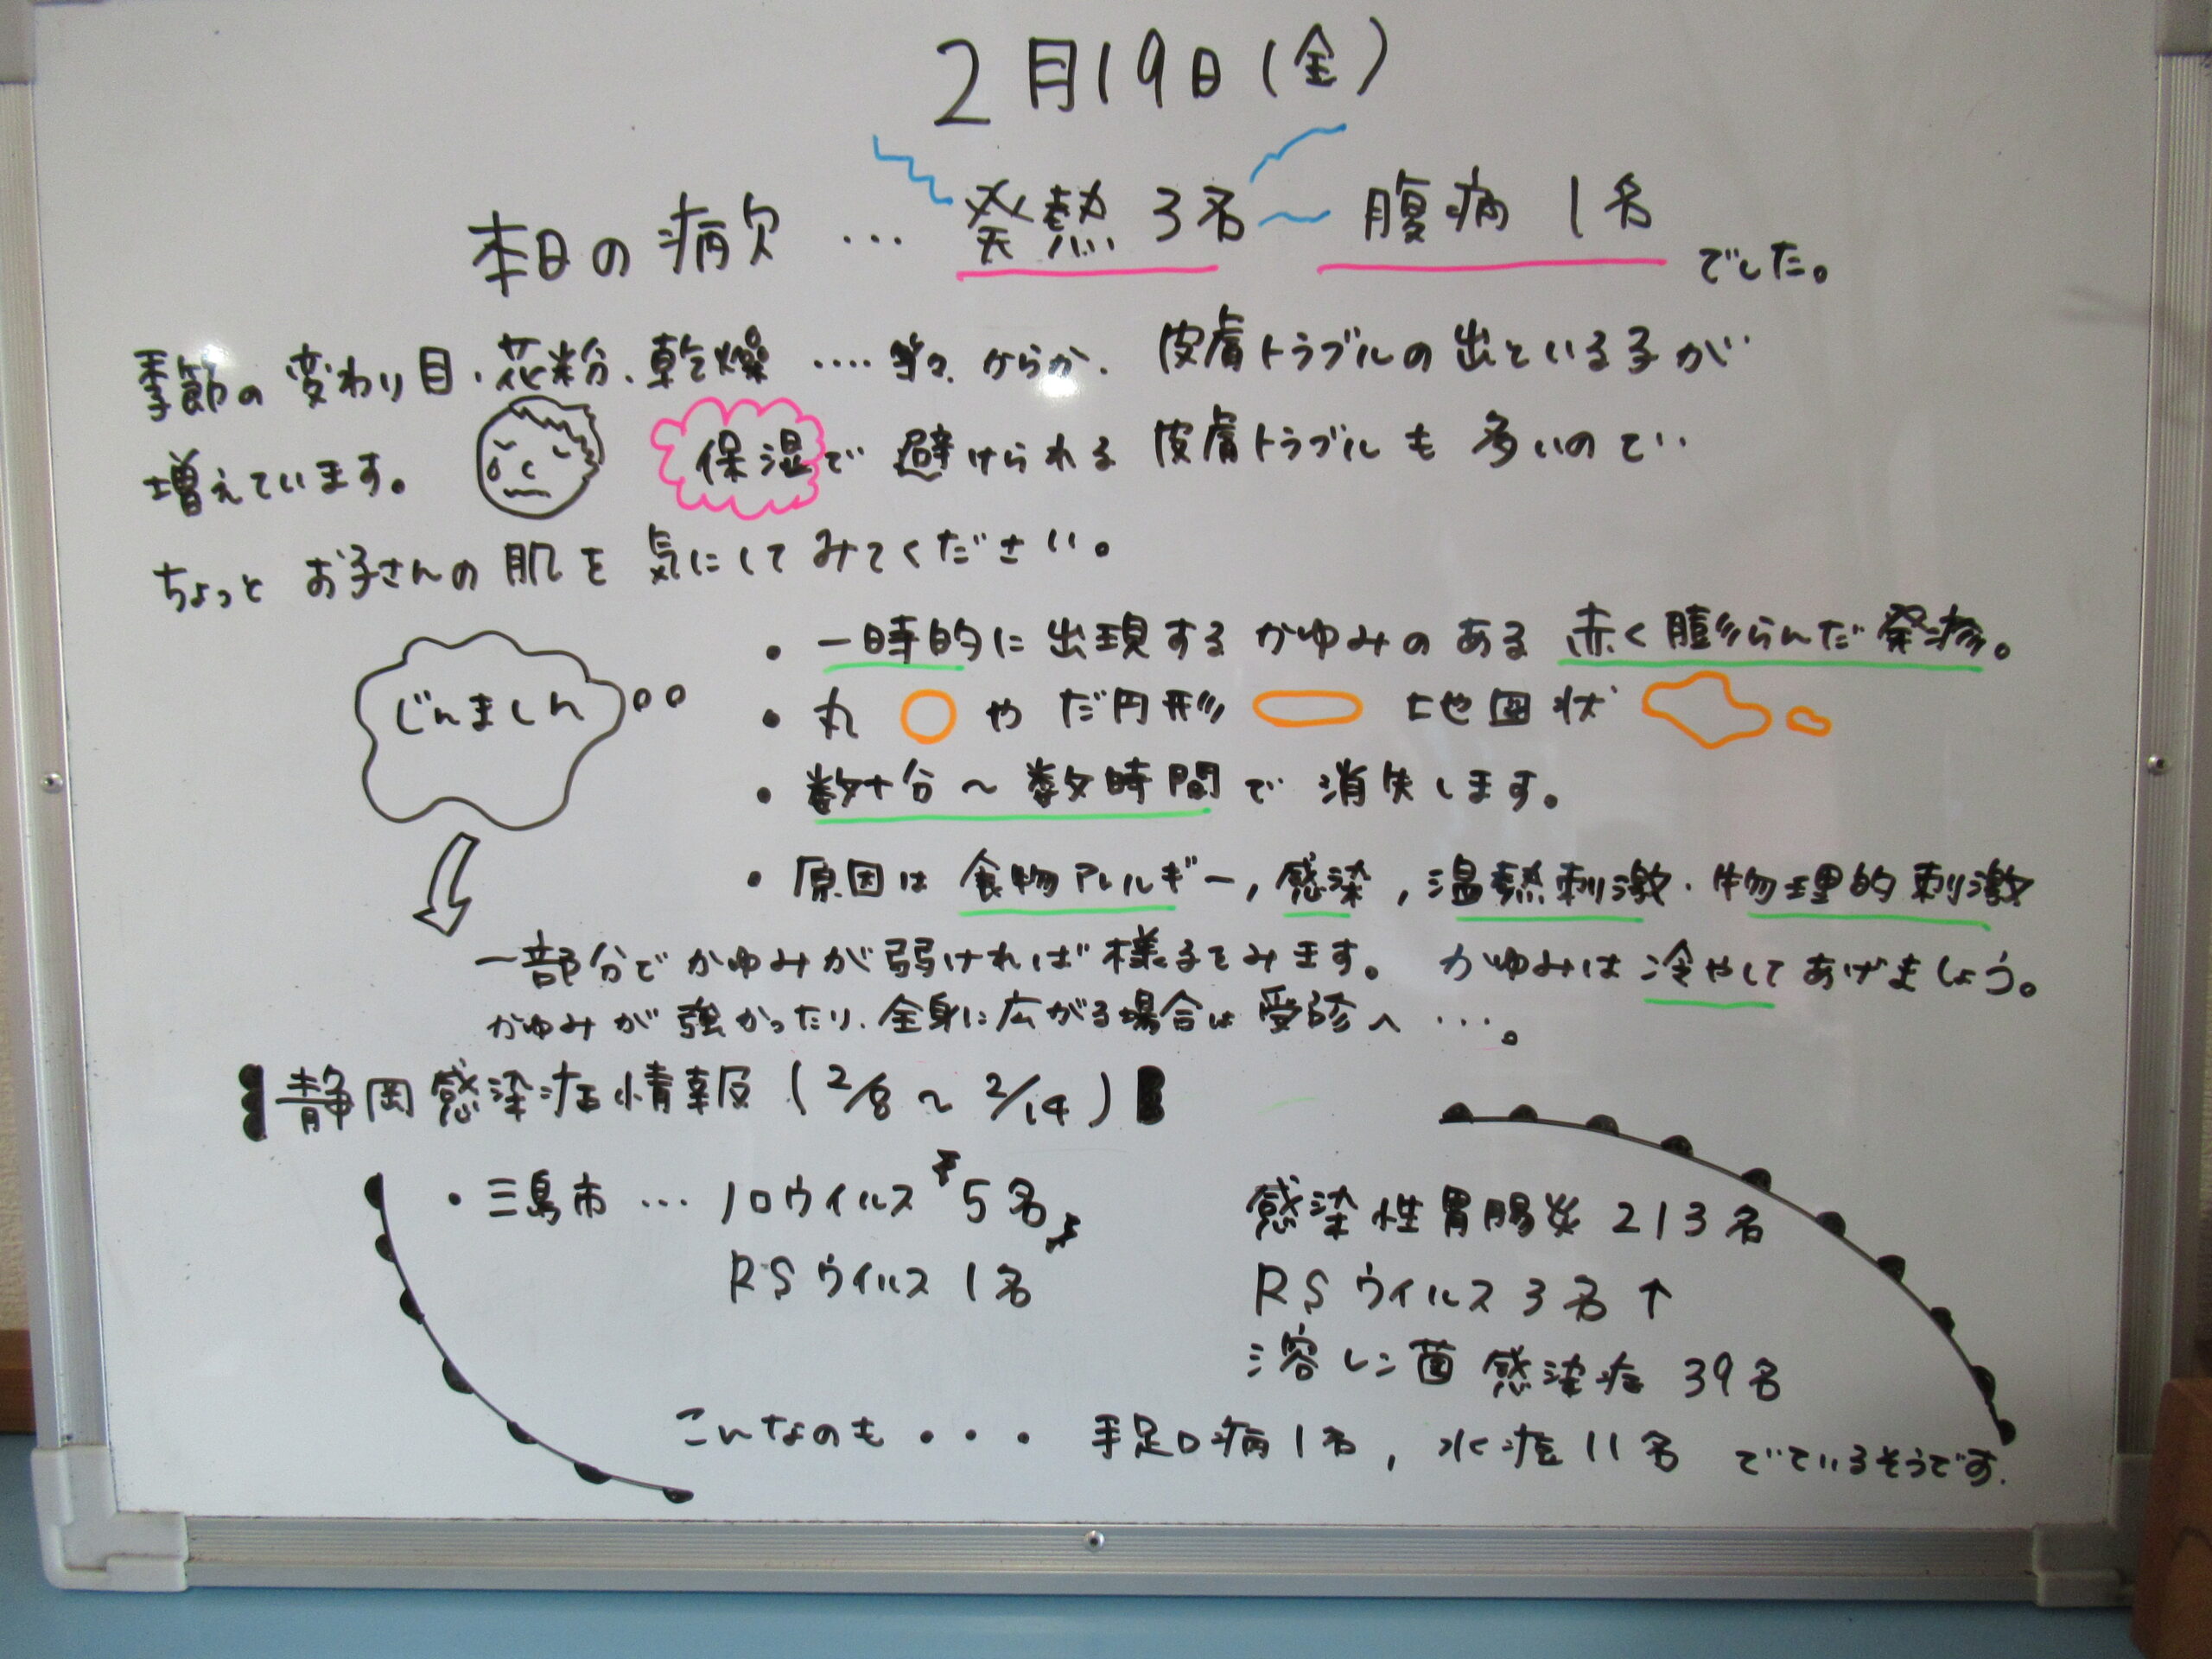 2月19日(金)
本日の病欠 … 発熱 3名 〜 腹病 1名 でした。
季節の変わり目、花粉、乾燥 ‥‥ 等々、からか、皮膚トラブルの出ている子が
増えています。 保湿で 避けられる 皮膚トラブルも 多いので
ちょっと お子さんの 肌を 気にしてみてください。
じんましん
・一時的に 出現する かゆみのある 赤く膨らんだ発疹。
・丸 や だ円形 地図状
・数十分〜数時間で 消失します。
・原因は 食物アレルギー, 感染, 温熱刺激・物理的刺激
一部分でかゆみが弱ければ様子をみます。 かゆみは 冷やして あげましょう。
かゆみが 強かったり、全身に広がる場合は 受診へ …。
静岡感染症情報 (2/8 〜 2/14)
・三島市 … ノロウイルス 5名
RSウイルス 1名
感染性胃腸炎 213名
RSウイルス 3名 ↑
溶レン菌 感染症 39名
こんなのも・・・ 手足口病1名, 水痘 11名 でているそうです.